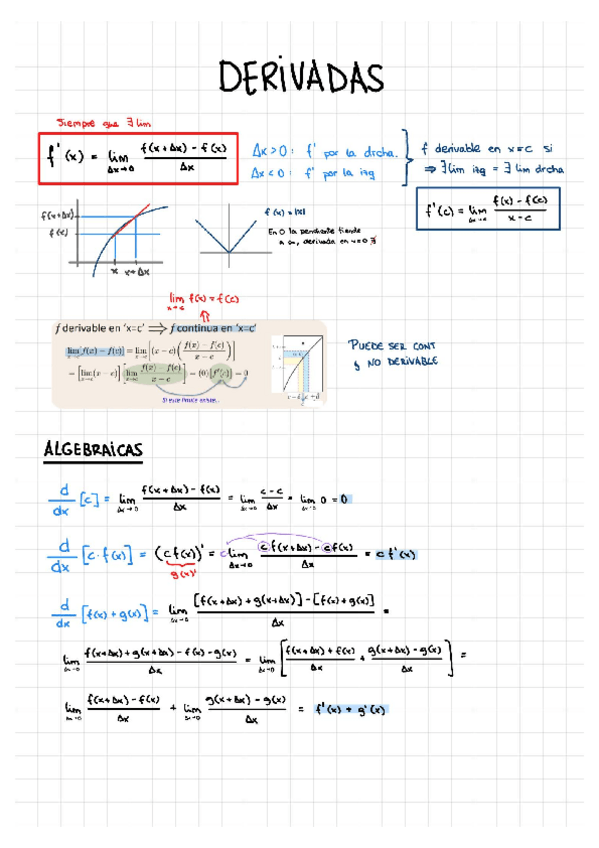 DERIVADAS
Siempre que ∃ lim
f'(x) = lim Δx→0 f(x+Δx) - f(x) / Δx
Δx > 0 : f' por la drcha.
Δx < 0 : f' por la izq
f derivable en x=c si
⇒ ∃ lim izq = ∃ lim drcha
f'(c) = lim x→c f(x) - f(c) / x - c
f(x+Δx)
f(c)
x x+Δx
f(x) = |x|
En 0 la pendiente tiende
a ∞, derivada en x=0 ∄
lim x→c f(x) = f(c)
f derivable en 'x=c' ⟹ f continua en 'x=c'
lim x→c [f(x) − f(c)] = lim x→c [(x − c) (f(x) − f(c) / x − c)]
= [lim x→c (x − c)] [lim x→c f(x) − f(c) / x − c] = (0)[f'(c)] = 0
Si este límite existe...
PUEDE SER CONT
y NO DERIVABLE
ALGEBRAICAS
d/dx [c] = lim Δx→0 f(x+Δx) - f(x) / Δx = lim Δx→0 c - c / Δx = lim Δx→0 0 = 0
d/dx [c·f(x)] = (c f(x))' = c lim Δx→0 c f(x+Δx) - c f(x) / Δx = c f'(x)
g(x)'
d/dx [f(x) + g(x)] = lim Δx→0 [f(x+Δx) + g(x+Δx)] - [f(x) + g(x)] / Δx =
lim Δx→0 f(x+Δx) + g(x+Δx) - f(x) - g(x) / Δx = lim Δx→0 [f(x+Δx) + f(x) / Δx + g(x+Δx) - g(x) / Δx] =
lim Δx→0 f(x+Δx) - f(x) / Δx + lim Δx→0 g(x+Δx) - g(x) / Δx = f'(x) + g'(x)